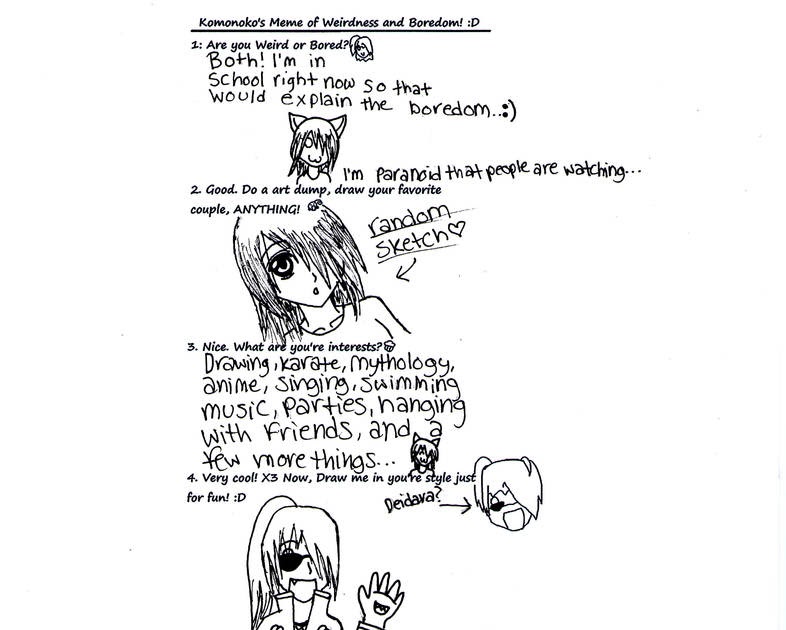 Komonoko's Meme of Weirdness and Boredom! :D
1: Are you Weird or Bored?
Both! I'm in
School right now so that
would explain the boredom..:)
I'm paranoid that people are watching...
2. Good. Do a art dump, draw your favorite
couple, ANYTHING!
random
sketch♡
3. Nice. What are you're interests?
Drawing, karate, mythology,
anime, singing, swimming
music, parties, hanging
with friends, and a
few more things...
4. Very cool! X3 Now, Draw me in you're style just
for fun! :D
Deidara?